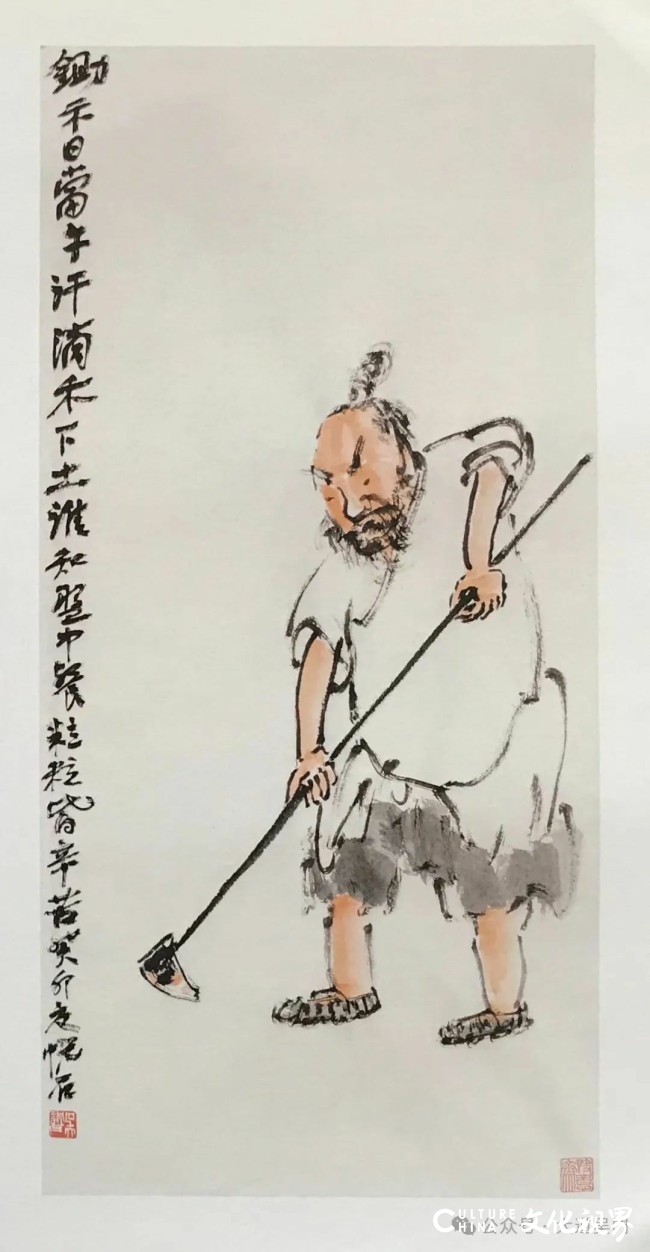 鋤禾日當午汗滴禾下土誰知盤中餐粒粒皆辛苦癸卯夏悦石
CULTURE CHINA 文化视界
公众号